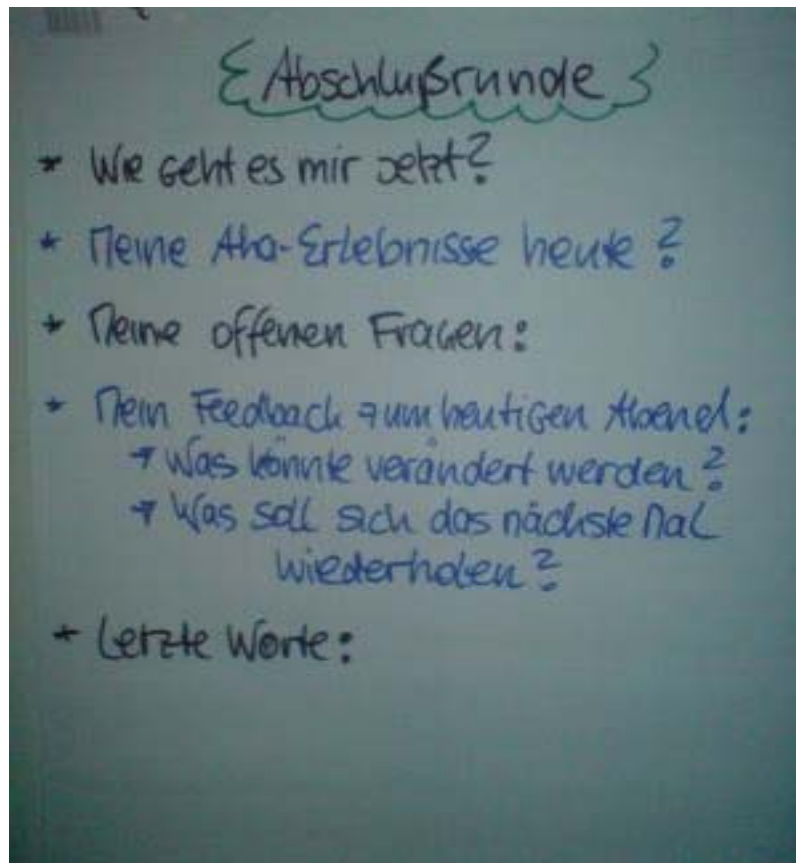 Abschlußrunde
* Wie geht es mir jetzt?
* Meine Aha-Erlebnisse heute?
* Meine offenen Fragen:
* Mein Feedback zum heutigen Abend:
→ Was könnte verändert werden?
→ Was soll sich das nächste Mal
wiederholen?
* Letzte Worte: